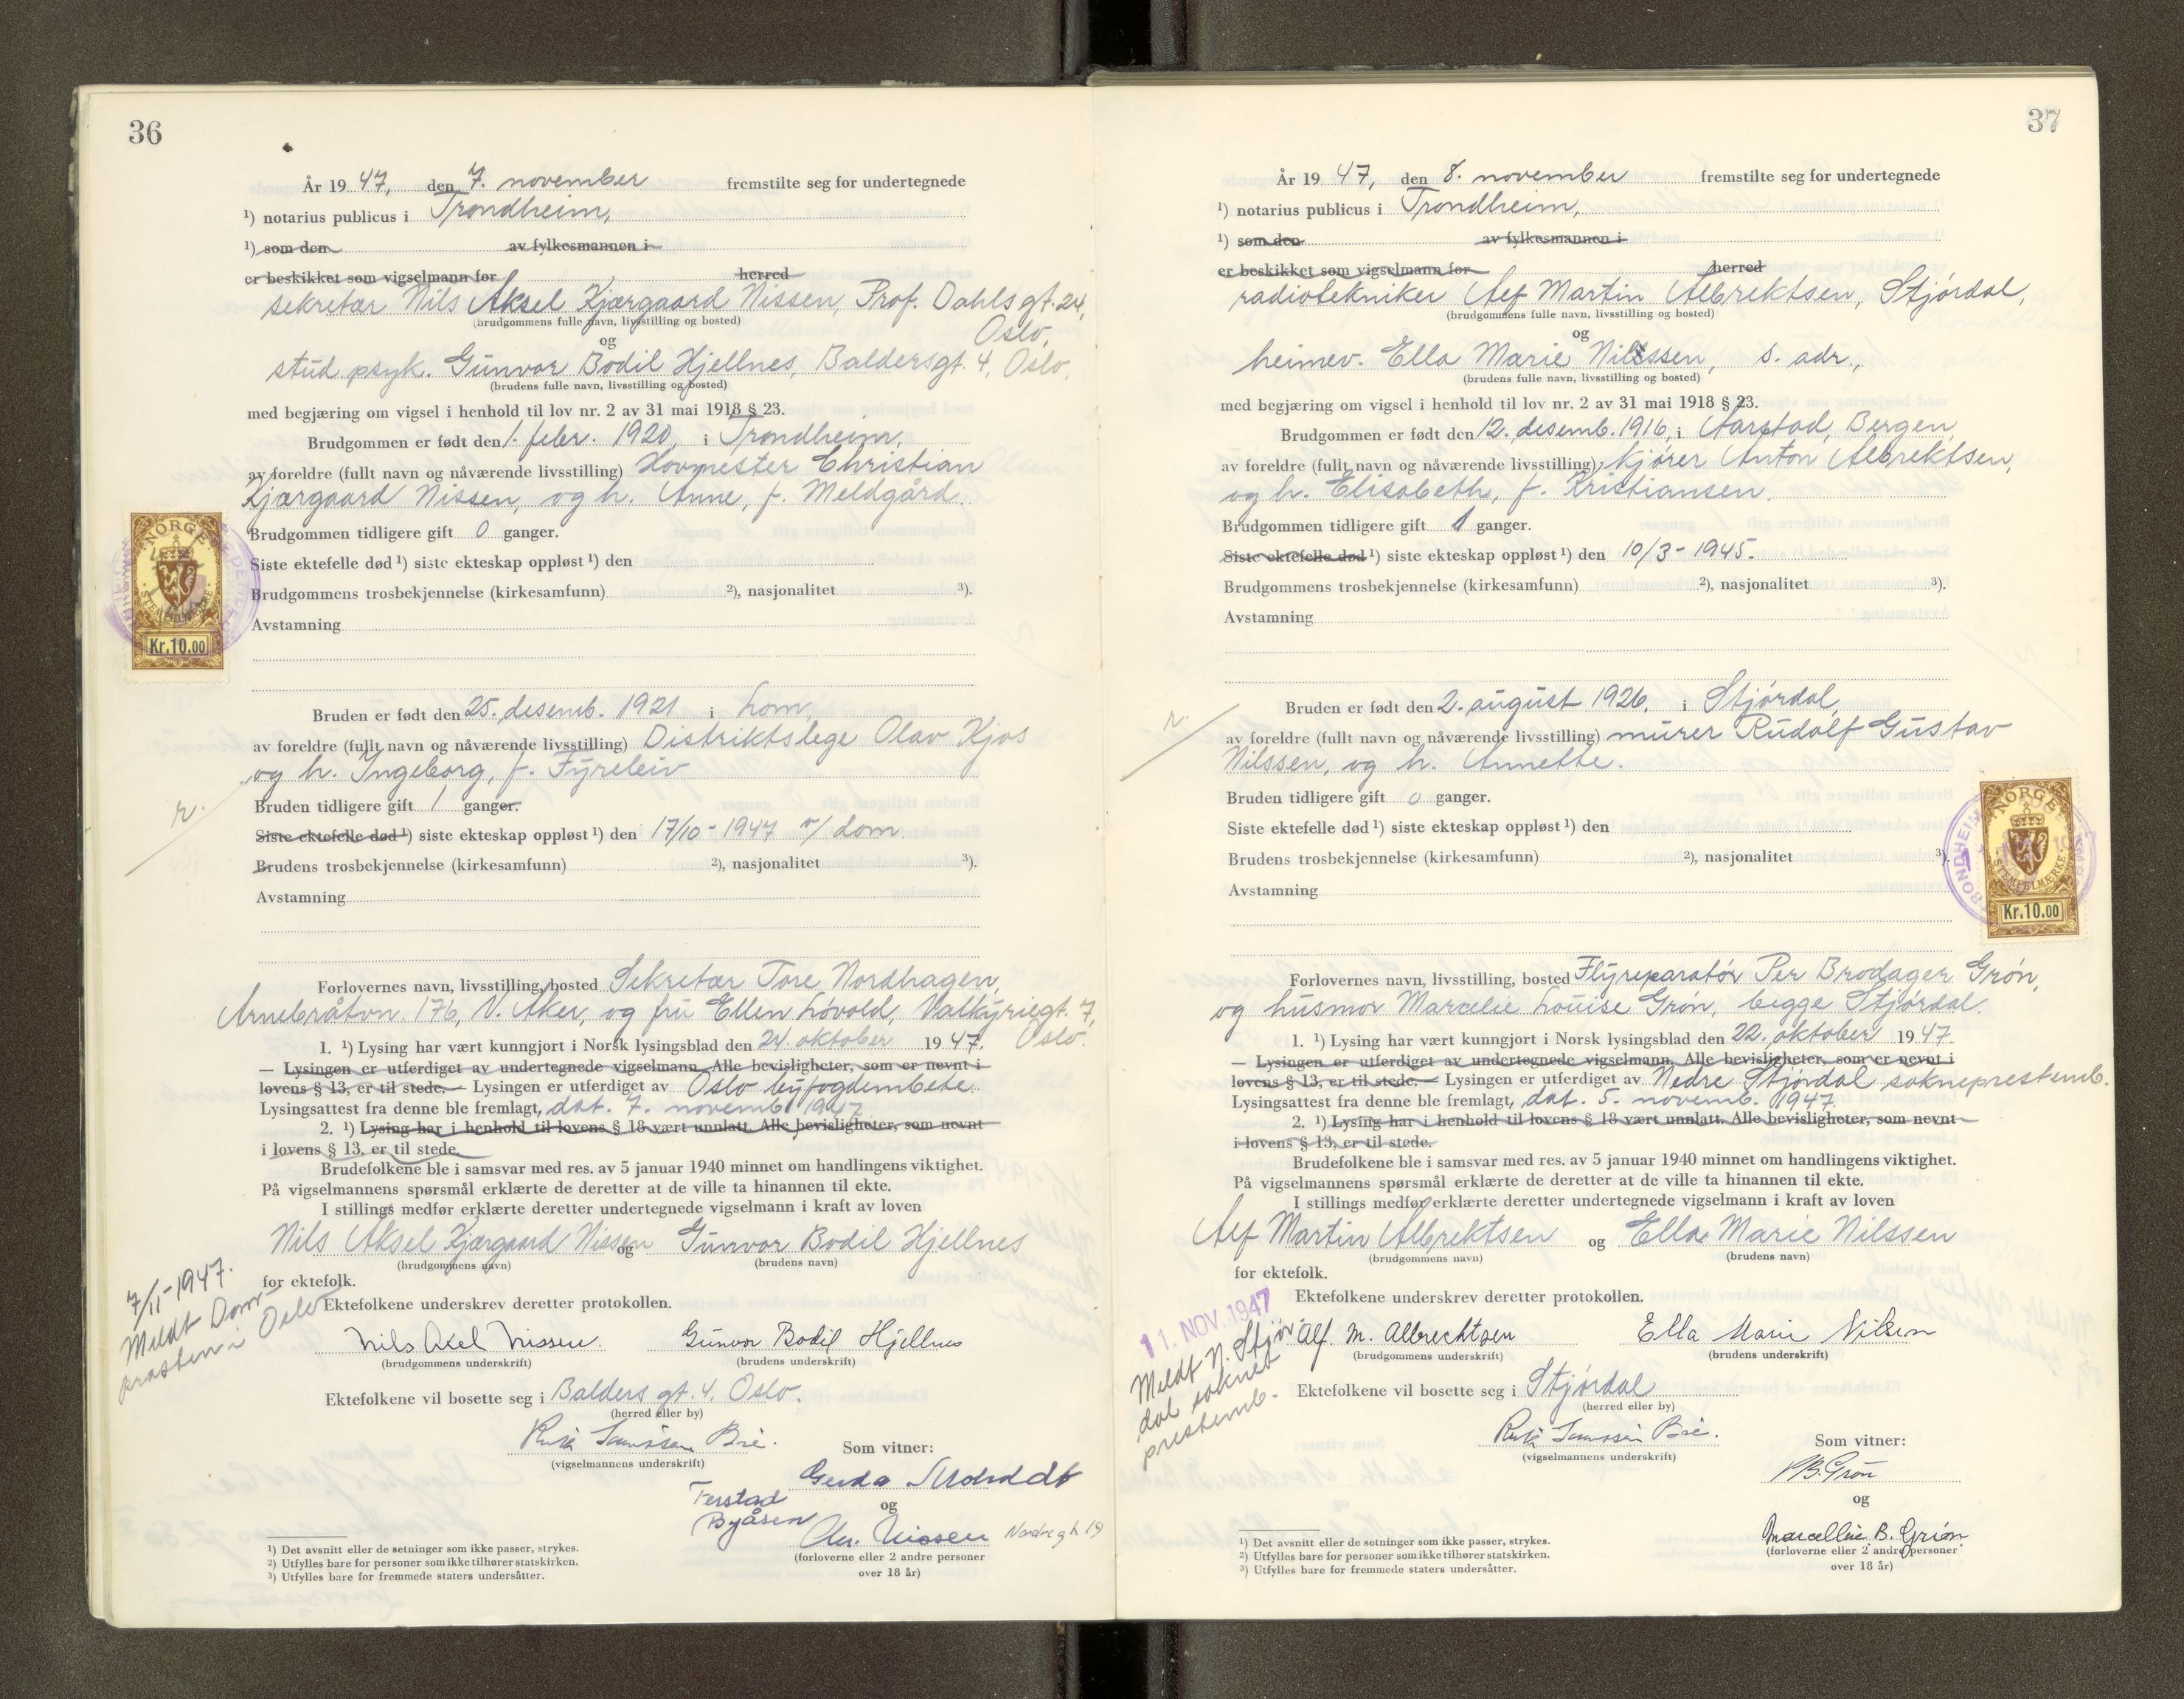 36
År 19 47, den 7. november fremstilte seg for undertegnede
¹) notarius publicus i Trondheim,
¹) som den av fylkesmannen i
er beskikket som vigselmann for herred
sekretær Nils Aksel Kjærgaard Nissen, Prof. Dahlsgt. 24,
(brudgommens fulle navn, livsstilling og bosted)
Oslo,
og
stud. psyk. Gunvor Bodil Hjellnes, Baldersgt. 4, Oslo.
(brudens fulle navn, livsstilling og bosted)
med begjæring om vigsel i henhold til lov nr. 2 av 31 mai 1918 § 23.
Brudgommen er født den 1. febr. 1920, i Trondheim,
av foreldre (fullt navn og nåværende livsstilling) Hovmester Christian
Kjærgaard Nissen, og h. Anne, f. Meldgård.
Brudgommen tidligere gift 0 ganger.
Siste ektefelle død ¹) siste ekteskap oppløst ¹) den
Brudgommens trosbekjennelse (kirkesamfunn) ²), nasjonalitet ³).
Avstamning
NORGE
STEMPELMERKE
Kr.10.00
Bruden er født den 25. desemb. 1921 i Lom,
av foreldre (fullt navn og nåværende livsstilling) Distriktslege Olav Kjos
og h. Ingeborg, f. Fyreleiv
Bruden tidligere gift 1 ganger.
r.
Siste ektefelle død ¹) siste ekteskap oppløst ¹) den 17/10 - 1947 v/ dom.
Brudens trosbekjennelse (kirkesamfunn) ²), nasjonalitet ³).
Avstamning
Forlovernes navn, livsstilling, bosted Sekretær Tore Nordhagen,
Arnebråtvn. 176, V. Aker, og fru Ellen Løvold, Valkyriegt. 7,
Oslo.
1. ¹) Lysing har vært kunngjort i Norsk lysingsblad den 24. oktober 19 47.
— Lysingen er utferdiget av undertegnede vigselmann. Alle bevisligheter, som er nevnt i
lovens § 13, er til stede. — Lysingen er utferdiget av Oslo byfogdembete.
Lysingsattest fra denne ble fremlagt, dat. 7. novemb. 1947
2. ¹) Lysing har i henhold til lovens § 18 vært unnlatt. Alle bevisligheter, som nevnt
i lovens § 13, er til stede.
Brudefolkene ble i samsvar med res. av 5 januar 1940 minnet om handlingens viktighet.
På vigselmannens spørsmål erklærte de deretter at de ville ta hinannen til ekte.
I stillings medfør erklærte deretter undertegnede vigselmann i kraft av loven
Nils Aksel Kjærgaard Nissen og Gunvor Bodil Hjellnes
(brudgommens navn) (brudens navn)
for ektefolk.
7/11-1947.
Meldt Dom-
prosten i Oslo
Ektefolkene underskrev deretter protokollen.
Nils Axel Nissen. Gunvor Bodil Hjellnes
(brudgommens underskrift) (brudens underskrift)
Ektefolkene vil bosette seg i Balders gt. 4, Oslo.
(herred eller by)
(vigselmannens underskrift)
Som vitner:
Gerda
Ferstad
Byåsen
og
Chr. Nissen Nordregt 19
(forloverne eller 2 andre personer
over 18 år)
¹) Det avsnitt eller de setninger som ikke passer, strykes.
²) Utfylles bare for personer som ikke tilhører statskirken.
³) Utfylles bare for fremmede staters undersåtter.
37
År 19 47, den 8. november fremstilte seg for undertegnede
¹) notarius publicus i Trondheim,
¹) som den av fylkesmannen i
er beskikket som vigselmann for herred
radiotekniker Alf Martin Albrektsen, Stjørdal,
(brudgommens fulle navn, livsstilling og bosted)
og
heimev. Ella Marie Nilssen, s. adr.,
(brudens fulle navn, livsstilling og bosted)
med begjæring om vigsel i henhold til lov nr. 2 av 31 mai 1918 § 23.
Brudgommen er født den 12. desemb. 1916, i Aarstad, Bergen,
av foreldre (fullt navn og nåværende livsstilling) kjører Anton Albrektsen,
og h. Elisabeth, f. Kristiansen.
Brudgommen tidligere gift 1 ganger.
Siste ektefelle død ¹) siste ekteskap oppløst ¹) den 10/3 - 1945.
Brudgommens trosbekjennelse (kirkesamfunn) ²), nasjonalitet ³).
Avstamning
Bruden er født den 2. august 1926, i Stjørdal,
r.
av foreldre (fullt navn og nåværende livsstilling) murer Rudolf Gustav
Nilssen, og h. Annette.
Bruden tidligere gift 0 ganger.
Siste ektefelle død ¹) siste ekteskap oppløst ¹) den
Brudens trosbekjennelse (kirkesamfunn) ²), nasjonalitet ³).
Avstamning
NORGE
STEMPELMERKE
Kr.10.00
Forlovernes navn, livsstilling, bosted Flyreparatør Per Brodager Grøn,
og husmor Marcelie Louise Grøn, begge Stjørdal.
1. ¹) Lysing har vært kunngjort i Norsk lysingsblad den 22. oktober 19 47.
— Lysingen er utferdiget av undertegnede vigselmann. Alle bevisligheter, som er nevnt i
lovens § 13, er til stede. — Lysingen er utferdiget av Nedre Stjørdal sokneprestemb.
Lysingsattest fra denne ble fremlagt, dat. 5. novemb. 1947.
2. ¹) Lysing har i henhold til lovens § 18 vært unnlatt. Alle bevisligheter, som nevnt
i lovens § 13, er til stede.
Brudefolkene ble i samsvar med res. av 5 januar 1940 minnet om handlingens viktighet.
På vigselmannens spørsmål erklærte de deretter at de ville ta hinannen til ekte.
I stillings medfør erklærte deretter undertegnede vigselmann i kraft av loven
Alf Martin Albrektsen og Ella Marie Nilssen
(brudgommens navn) (brudens navn)
for ektefolk.
11. NOV. 1947
Meldt N. Stjør-
dal soknet
prestemb.
Ektefolkene underskrev deretter protokollen.
Alf. M. Albrechtsen Ella Marie Nilsen
(brudgommens underskrift) (brudens underskrift)
Ektefolkene vil bosette seg i Stjørdal
(herred eller by)
(vigselmannens underskrift)
Som vitner:
P.B. Grøn
og
Marcellie B. Grøn
(forloverne eller 2 andre personer
over 18 år)
¹) Det avsnitt eller de setninger som ikke passer, strykes.
²) Utfylles bare for personer som ikke tilhører statskirken.
³) Utfylles bare for fremmede staters undersåtter.